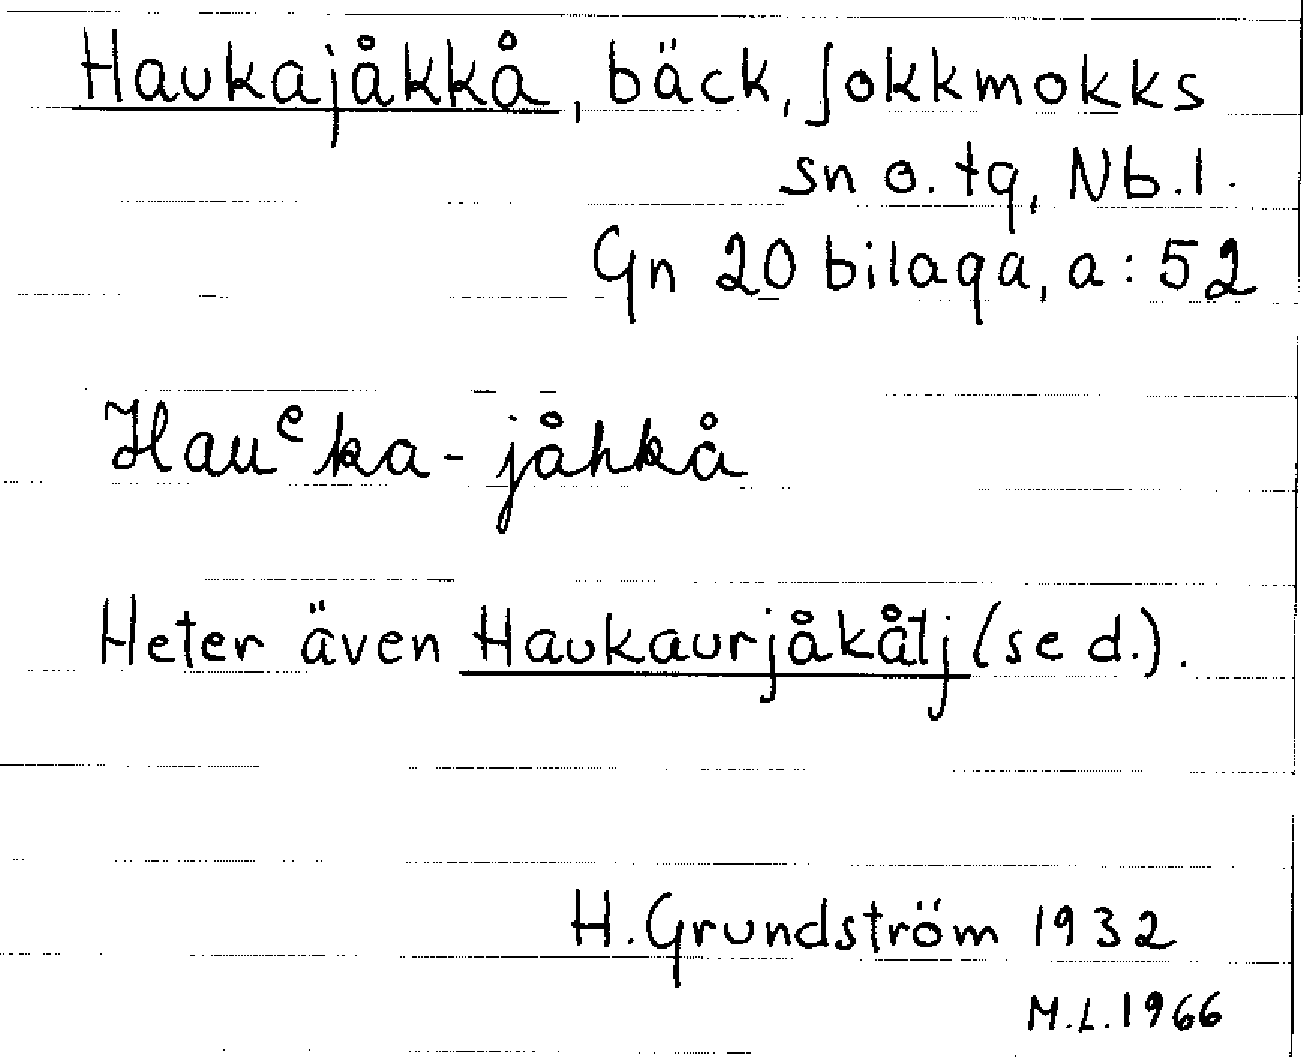 Haukajåkkå, bäck, Jokkmokks
sn o. tg, Nb.l.
Gn 20 bilaga, a: 52
Hauᵉka-jåhkå
Heter även Haukaurjåkåtj (se d.).
H. Grundström 1932
M.L. 1966